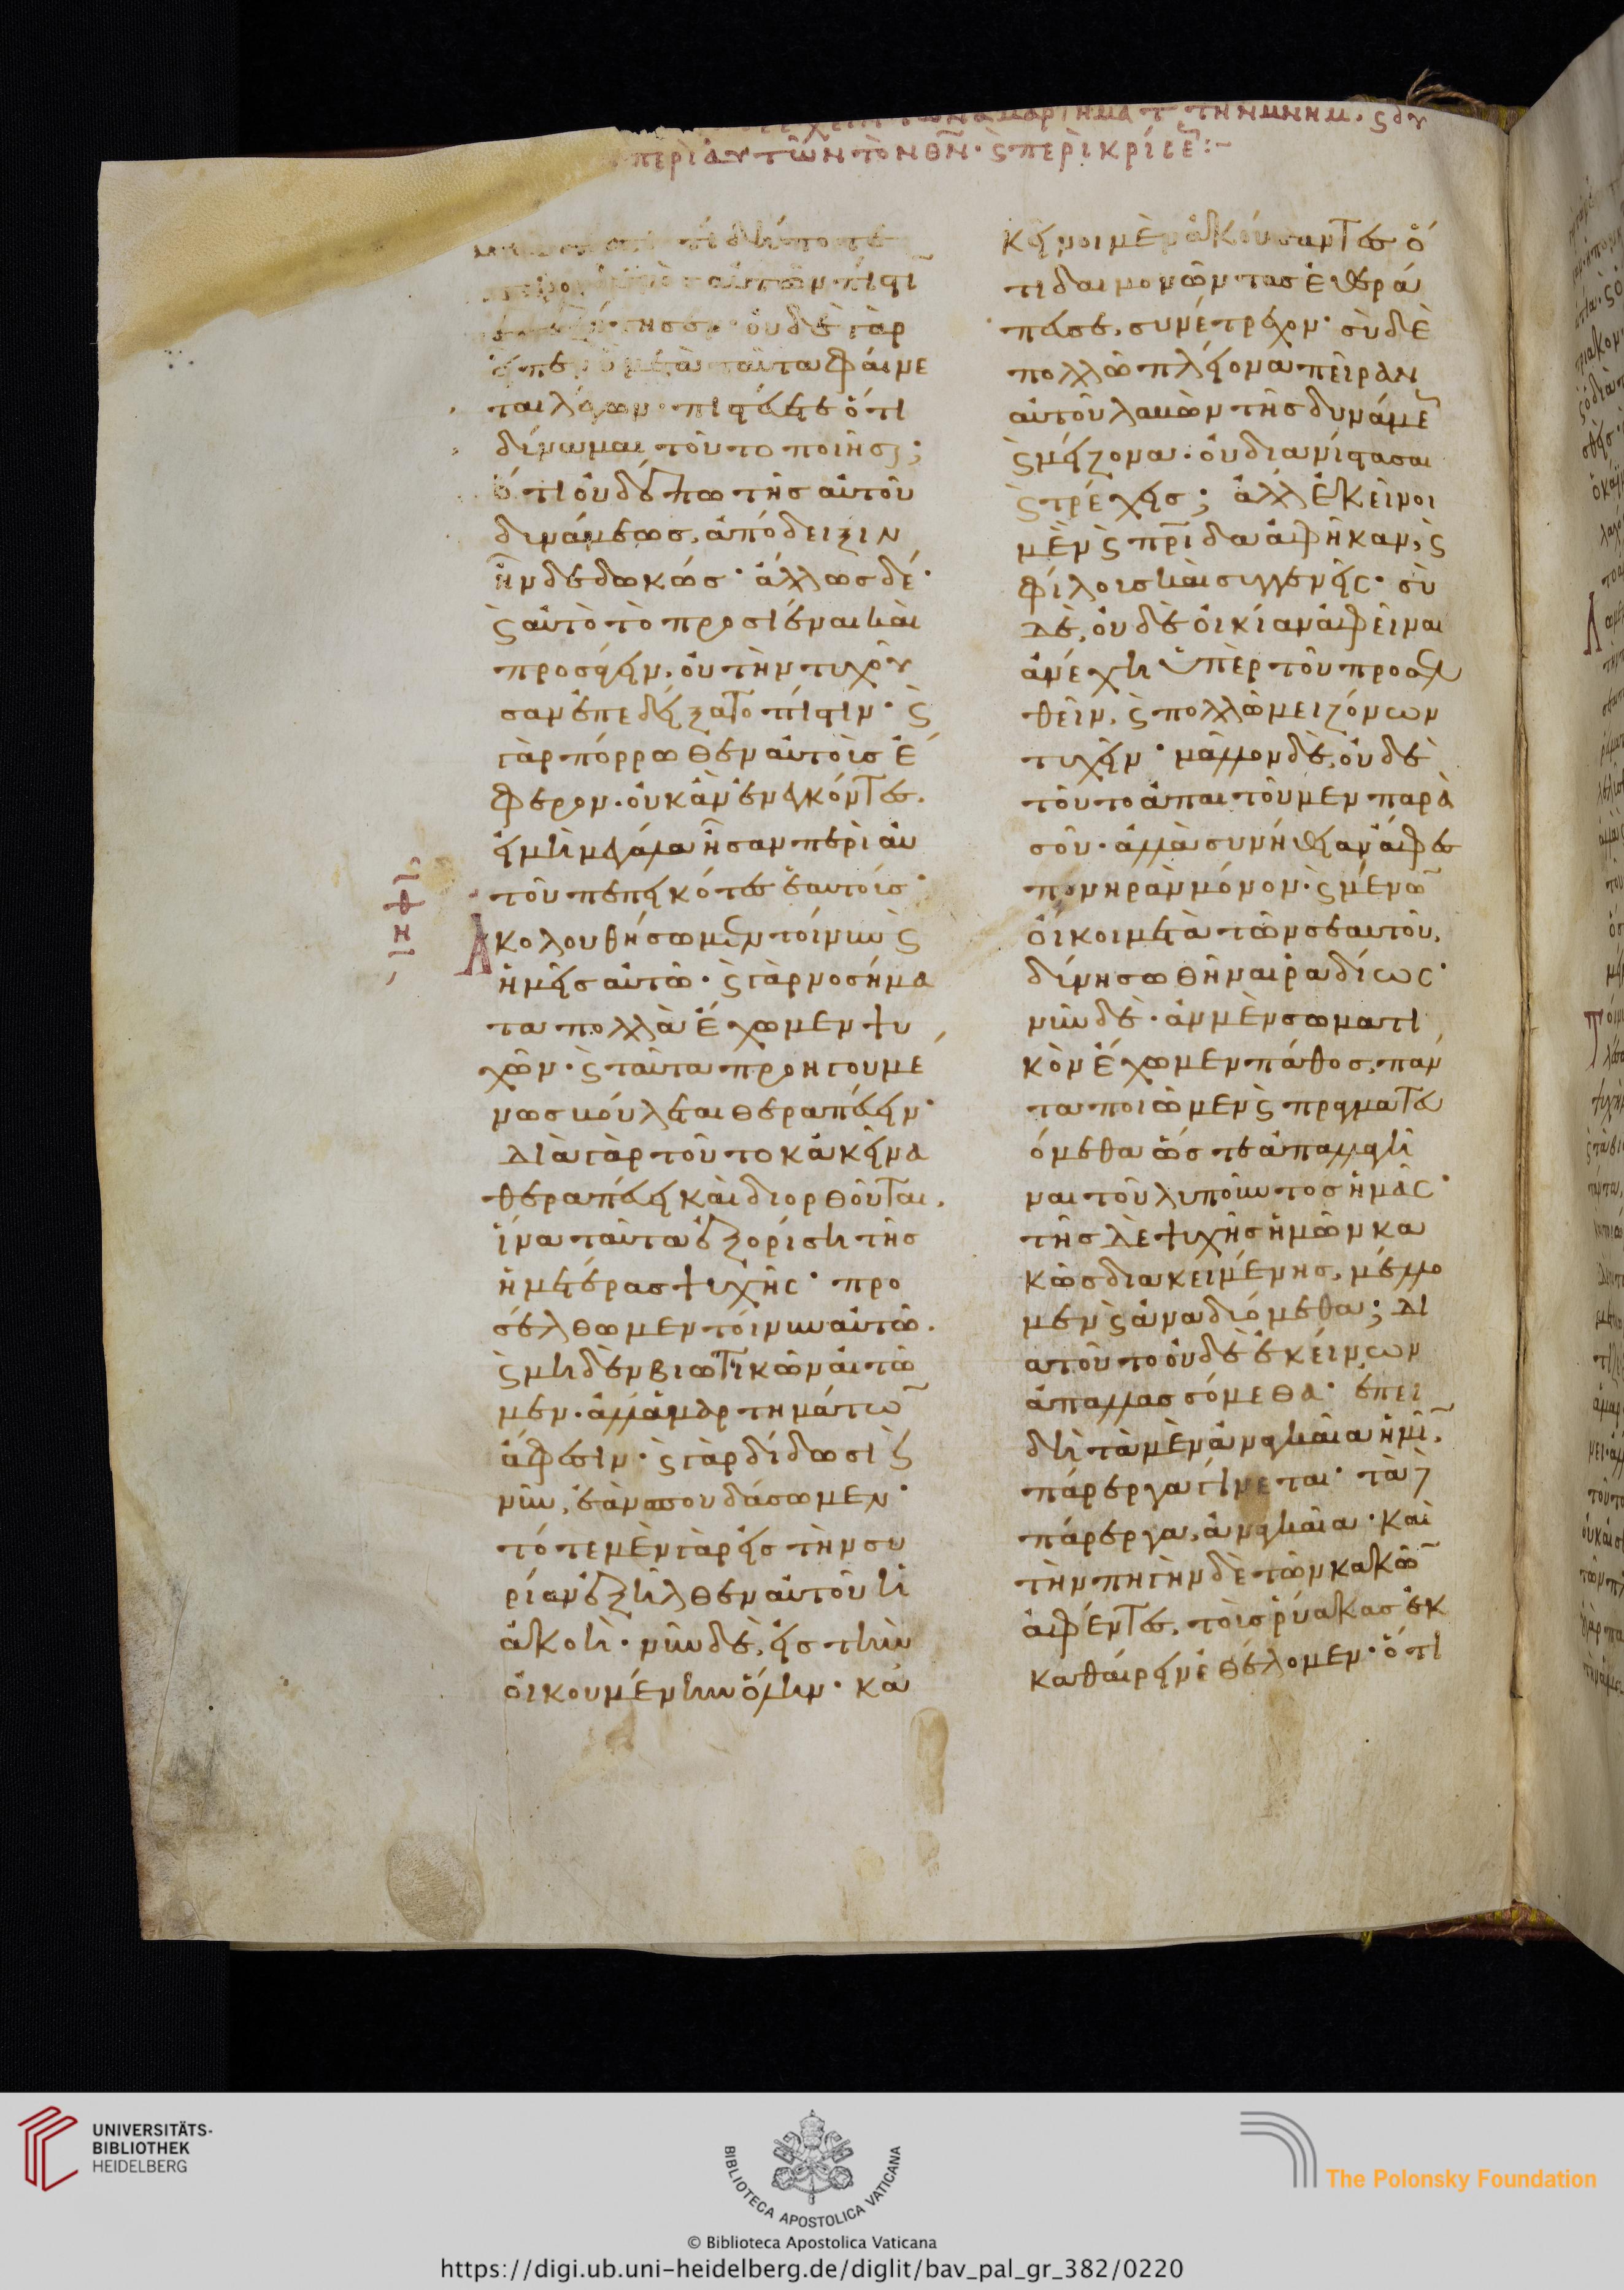 ἁμαρτημάτ τὴν μνήμ· ϗ οὐ
περὶ αὐτῶν τὸν θν̄· ϗ περὶ κρίσε:-
τί δήποτε
αὐτῶν πίστῑ
ἐπεζήτησεν· οὐδὲ γὰρ
εἶπεν ὃ μετὰ ταῦτα φαίνε
ται λέγων· πιστεύετε ὅτι
δύναμαι τοῦτο ποιῆσαι;
ὅτι οὐδέπω τῆς αὐτοῦ
δυνάμεως, ἀπόδειξιν
ἦν δεδωκώς· ἄλλως δέ·
ϗ αὐτὸ τὸ προσιέναι καὶ
προσάγειν, οὐ τὴν τυχοῦ
σαν ἐπεδείξατο πίστιν· ϗ
γὰρ πόρρωθεν αὐτοὺς ἔ
φερον· οὐκ ἂν ἐνεγκόντες,
εἰ μὴ μεγάλα ἦσαν περὶ αὐ
τοῦ πεπεικότες ἑαυτούς·
Ἀκολουθήσωμεν τοίνυν ϗ
ἡμεῖς αὐτῶ· ϗ γὰρ νοσήμα
τα πολλὰ ἔχωμεν ψυ
χῶν· ϗ ταῦτα προηγουμέ
νως βούλεται θεραπεύειν·
διὰ γὰρ τοῦτο κἀκεῖνα
θεραπεύει καὶ διορθοῦται,
ἵνα ταῦτα ἐξορίση τῆς
ἡμετέρας ψυχῆς· προ
σέλθωμεν τοίνυν αὐτῶ.
ϗ μηδὲν βιωτικῶν αἰτῶ
μεν· ἀλλ' ἁμαρτημάτω̄
ἄφεσιν· ϗ γὰρ δίδωσι ϗ
νῦν, ἐὰν σπουδάσωμεν·
τότε μὲν γὰρ εἰς τὴν συ
ρίαν ἐξῆλθεν αὐτοῦ ἡ
ἀκοή· νῦν δὲ, εἰς τὴν
οἰκουμένην ὅλην· κἀ
κεῖνοι μὲν ἀκούσαντες ὅ
τι δαιμονῶντας ἐθερά
πευσε, συνέτρεχον· σὺ δὲ
πολλῶ πλείονα πεῖραν
αὐτοῦ λαβὼν τῆς δυνάμε
ϗ μείζονα· οὐ διανίστασαι
ϗ τρέχεις; ἀλλ' ἐκεῖνοι
μὲν ϗ πρ̄ίδα ἀφῆκαν, ϗ
φίλους καὶ συγγενεῖς· σὺ
δὲ, οὐδὲ οἰκίαν ἀφεῖναι
ἀνέχη ὑπὲρ τοῦ προσελ
θεῖν, ϗ πολλῶ μειζόνων
τυχεῖν· μᾶλλον δὲ, οὐδὲ
τοῦτο ἀπαιτοῦμεν παρὰ
σοῦ· ἀλλὰ συνήθειαν ἄφες
πονηρὰν μόνον· ϗ μένω̄
οἴκοι μετὰ τῶν σεαυτοῦ,
δύνησω θῆναι ῥαδίως·
νῦν δὲ· ἂν μὲν σωματι
κὸν ἔχωμεν πάθος, πάν
τα ποιῶμεν ϗ πραγματευ
όμεθα ὥστε ἀπαλλαγῆ
ναι τοῦ λυποῦντος ἡμᾶς·
τῆς δὲ ψυχῆς ἡμῶν κα
κῶς διακειμένης, μέλλο
μεν ϗ ἀναδυόμεθα; δι
ατοῦτο οὐδὲ ἐκείνων
ἀπαλλασσόμεθα· ἐπει
δὴ τὰ μὲν ἀναγκαῖα ἡμῖ̄,
πάρεργα γίνεται· τὰ δὲ
πάρεργα, ἀναγκαῖα· καὶ
τὴν πηγὴν δὲ τῶν κακῶ̄
ἀφέντες, τοὺς ῥύακας ἐκ
καθαίρειν ἐθέλομεν· ὅτι
UNIVERSITÄTS-
BIBLIOTHEK
HEIDELBERG
BIBLIOTECA APOSTOLICA VATICANA
© Biblioteca Apostolica Vaticana
The Polonsky Foundation
https://digi.ub.uni-heidelberg.de/diglit/bav_pal_gr_382/0220